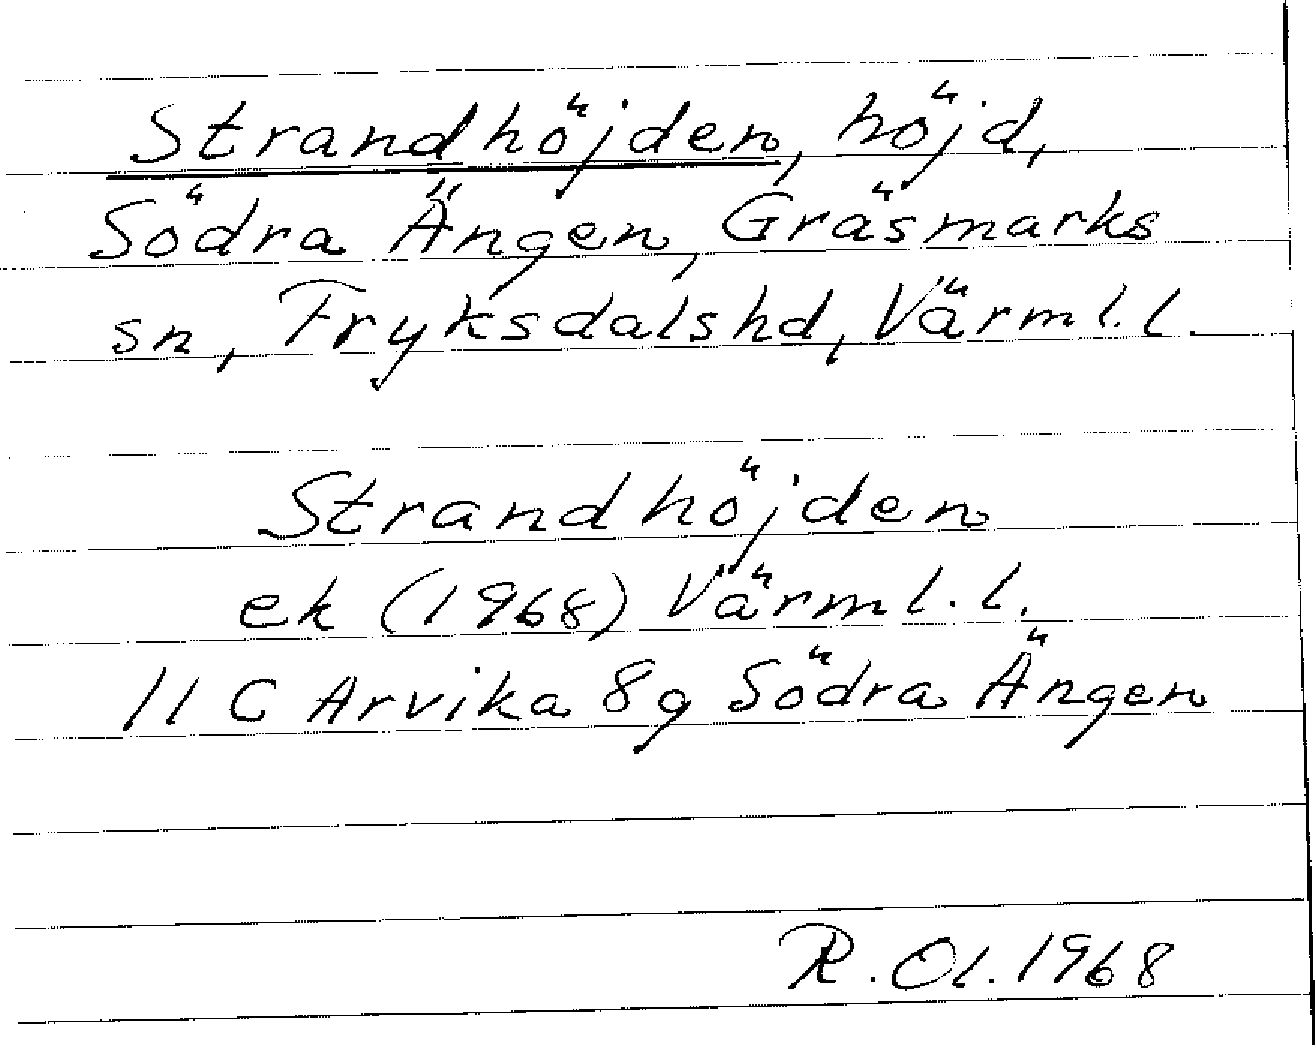 Strandhöjden, höjd,
Södra Ängen, Gräsmarks
sn, Fryksdalshd, Värml. l.
Strandhöjden
ek (1968) Värml. l.
11 C Arvika 8g Södra Ängen
R. Ol. 1968